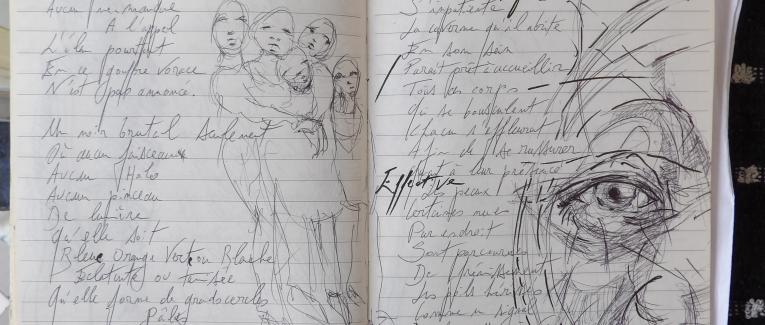 Aucun ne
A l'appel
L'élan pourtant
En ce gouffre vorace
N'est pas annoncé.
Un noir brutal seulement
Où aucun faisceaux
Aucun Halo
Aucun pinceau
De
Qu'elle soit
Bleue Orange Verte ou Blanche
Eclatante ou tamisée
Qu'elle forme de grands cercles
Pâles
S'impatiente
La caverne qui l'abrite
En son sein
Parait prêt à accueillir
Tous ces corps
Qui se bousculent
Chacun s'effleurant
Afin de se rassurer
à leur présence
Effective
Les peaux
Certaines nues
Par endroit
Sont parcourues
De frémissement
Les poils hérissés
Comme un signal